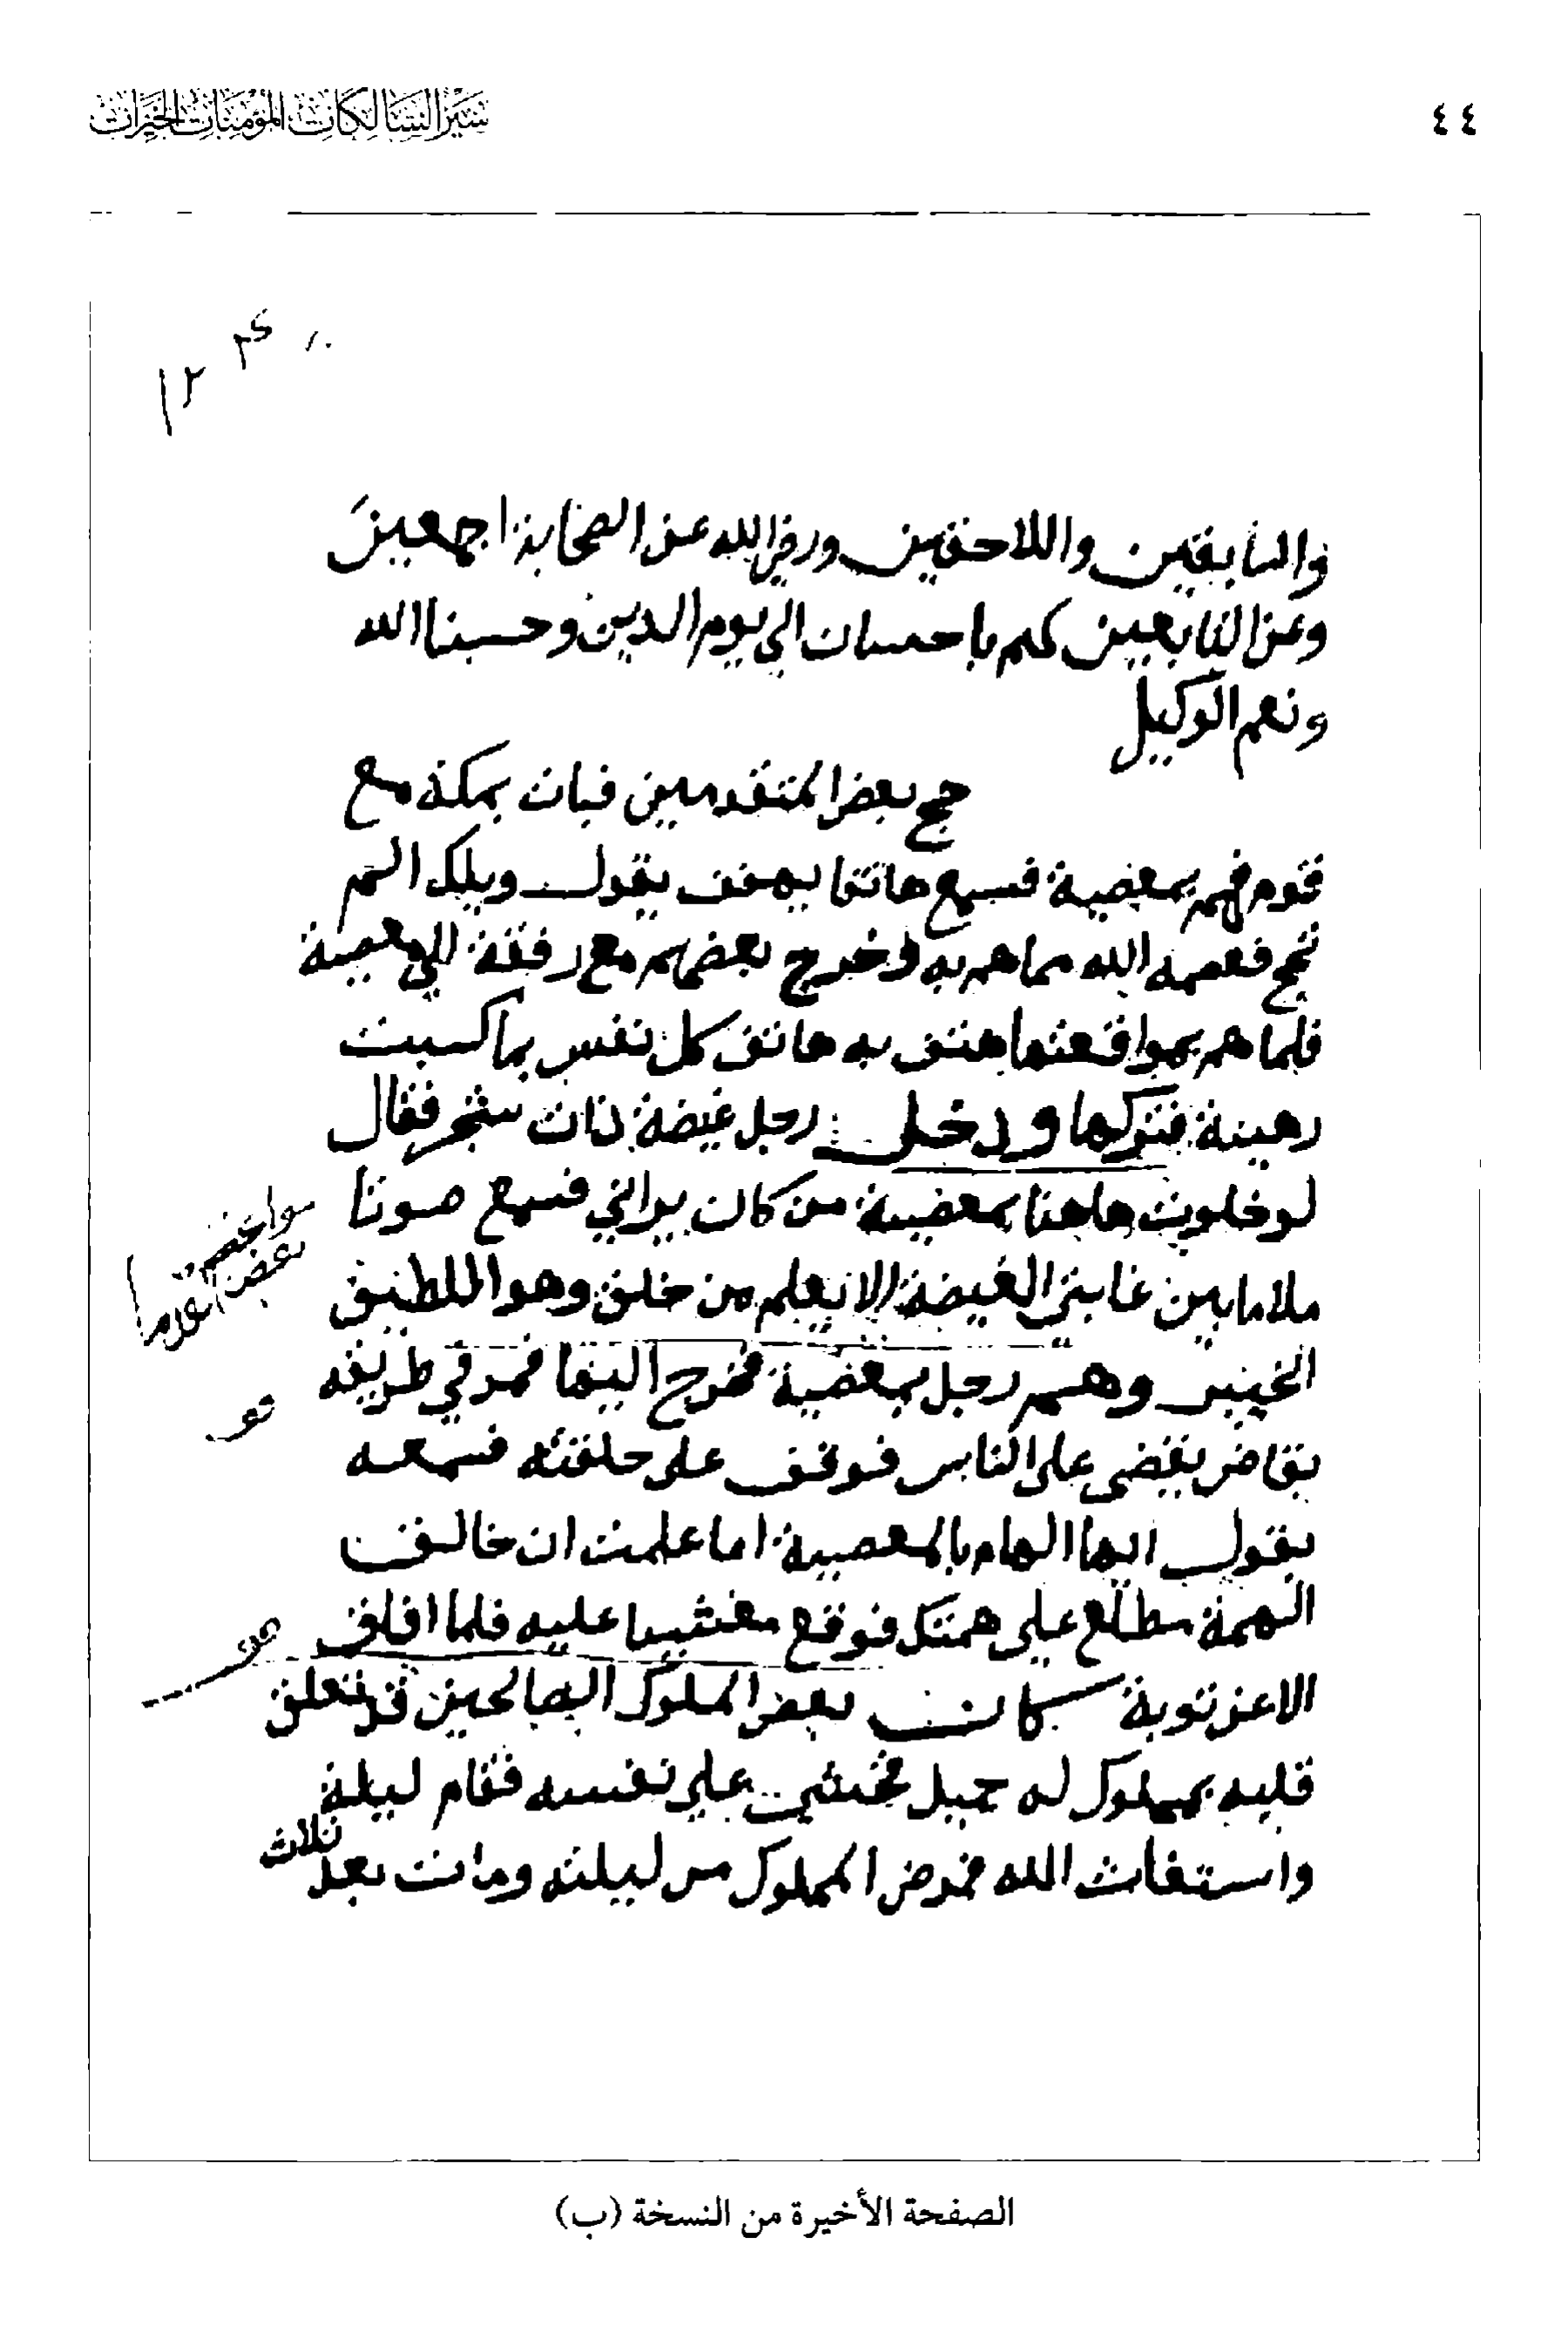 ٤٤
سير السالكات المؤمنات الخيرات
والسابقين واللاحقين ورضي الله عن الصحابة اجمعين
وعن التابعين لهم باحسان الي يوم الدين وحسبنا الله
ونعم الوكيل
حج بعض المتقدمين فبات بمكة مع
قوم فهم بمعصية فسمع هاتفا يهتف يقول ويلك الم
تحج فعصمه الله مما هم به وخرج بعضهم مع رفقة الي معصية
فلما هم بمواقعتها هتف به هاتف كل نفس بما كسبت
رهينة فتركها ودخل رجل غيضة ذات شجر فقال
لو خلوت هاهنا بمعصية من كان يراني فسمع صوتا
ملا ما بين غابتي الغيضة الا يعلم من خلق وهو اللطيف
الخبير وهم رجل بمعصية فخرج اليها فمر في طريقه
بقاض يقضي على الناس فوقف على حلقته فسمعه
يقول ايها الهام بالمعصية اما علمت ان خالق
الهمة مطلع على همتك فوقع مغشيا عليه فلما افاق
الا عن توبة كان بعض الملوك الصالحين قد تعلق
قلبه بمملوك له جميل فخشي على نفسه فقام ليلة
واستغاث الله فمرض المملوك من ليلته ومات بعد ثلاث
الصفحة الأخيرة من النسخة (ب)